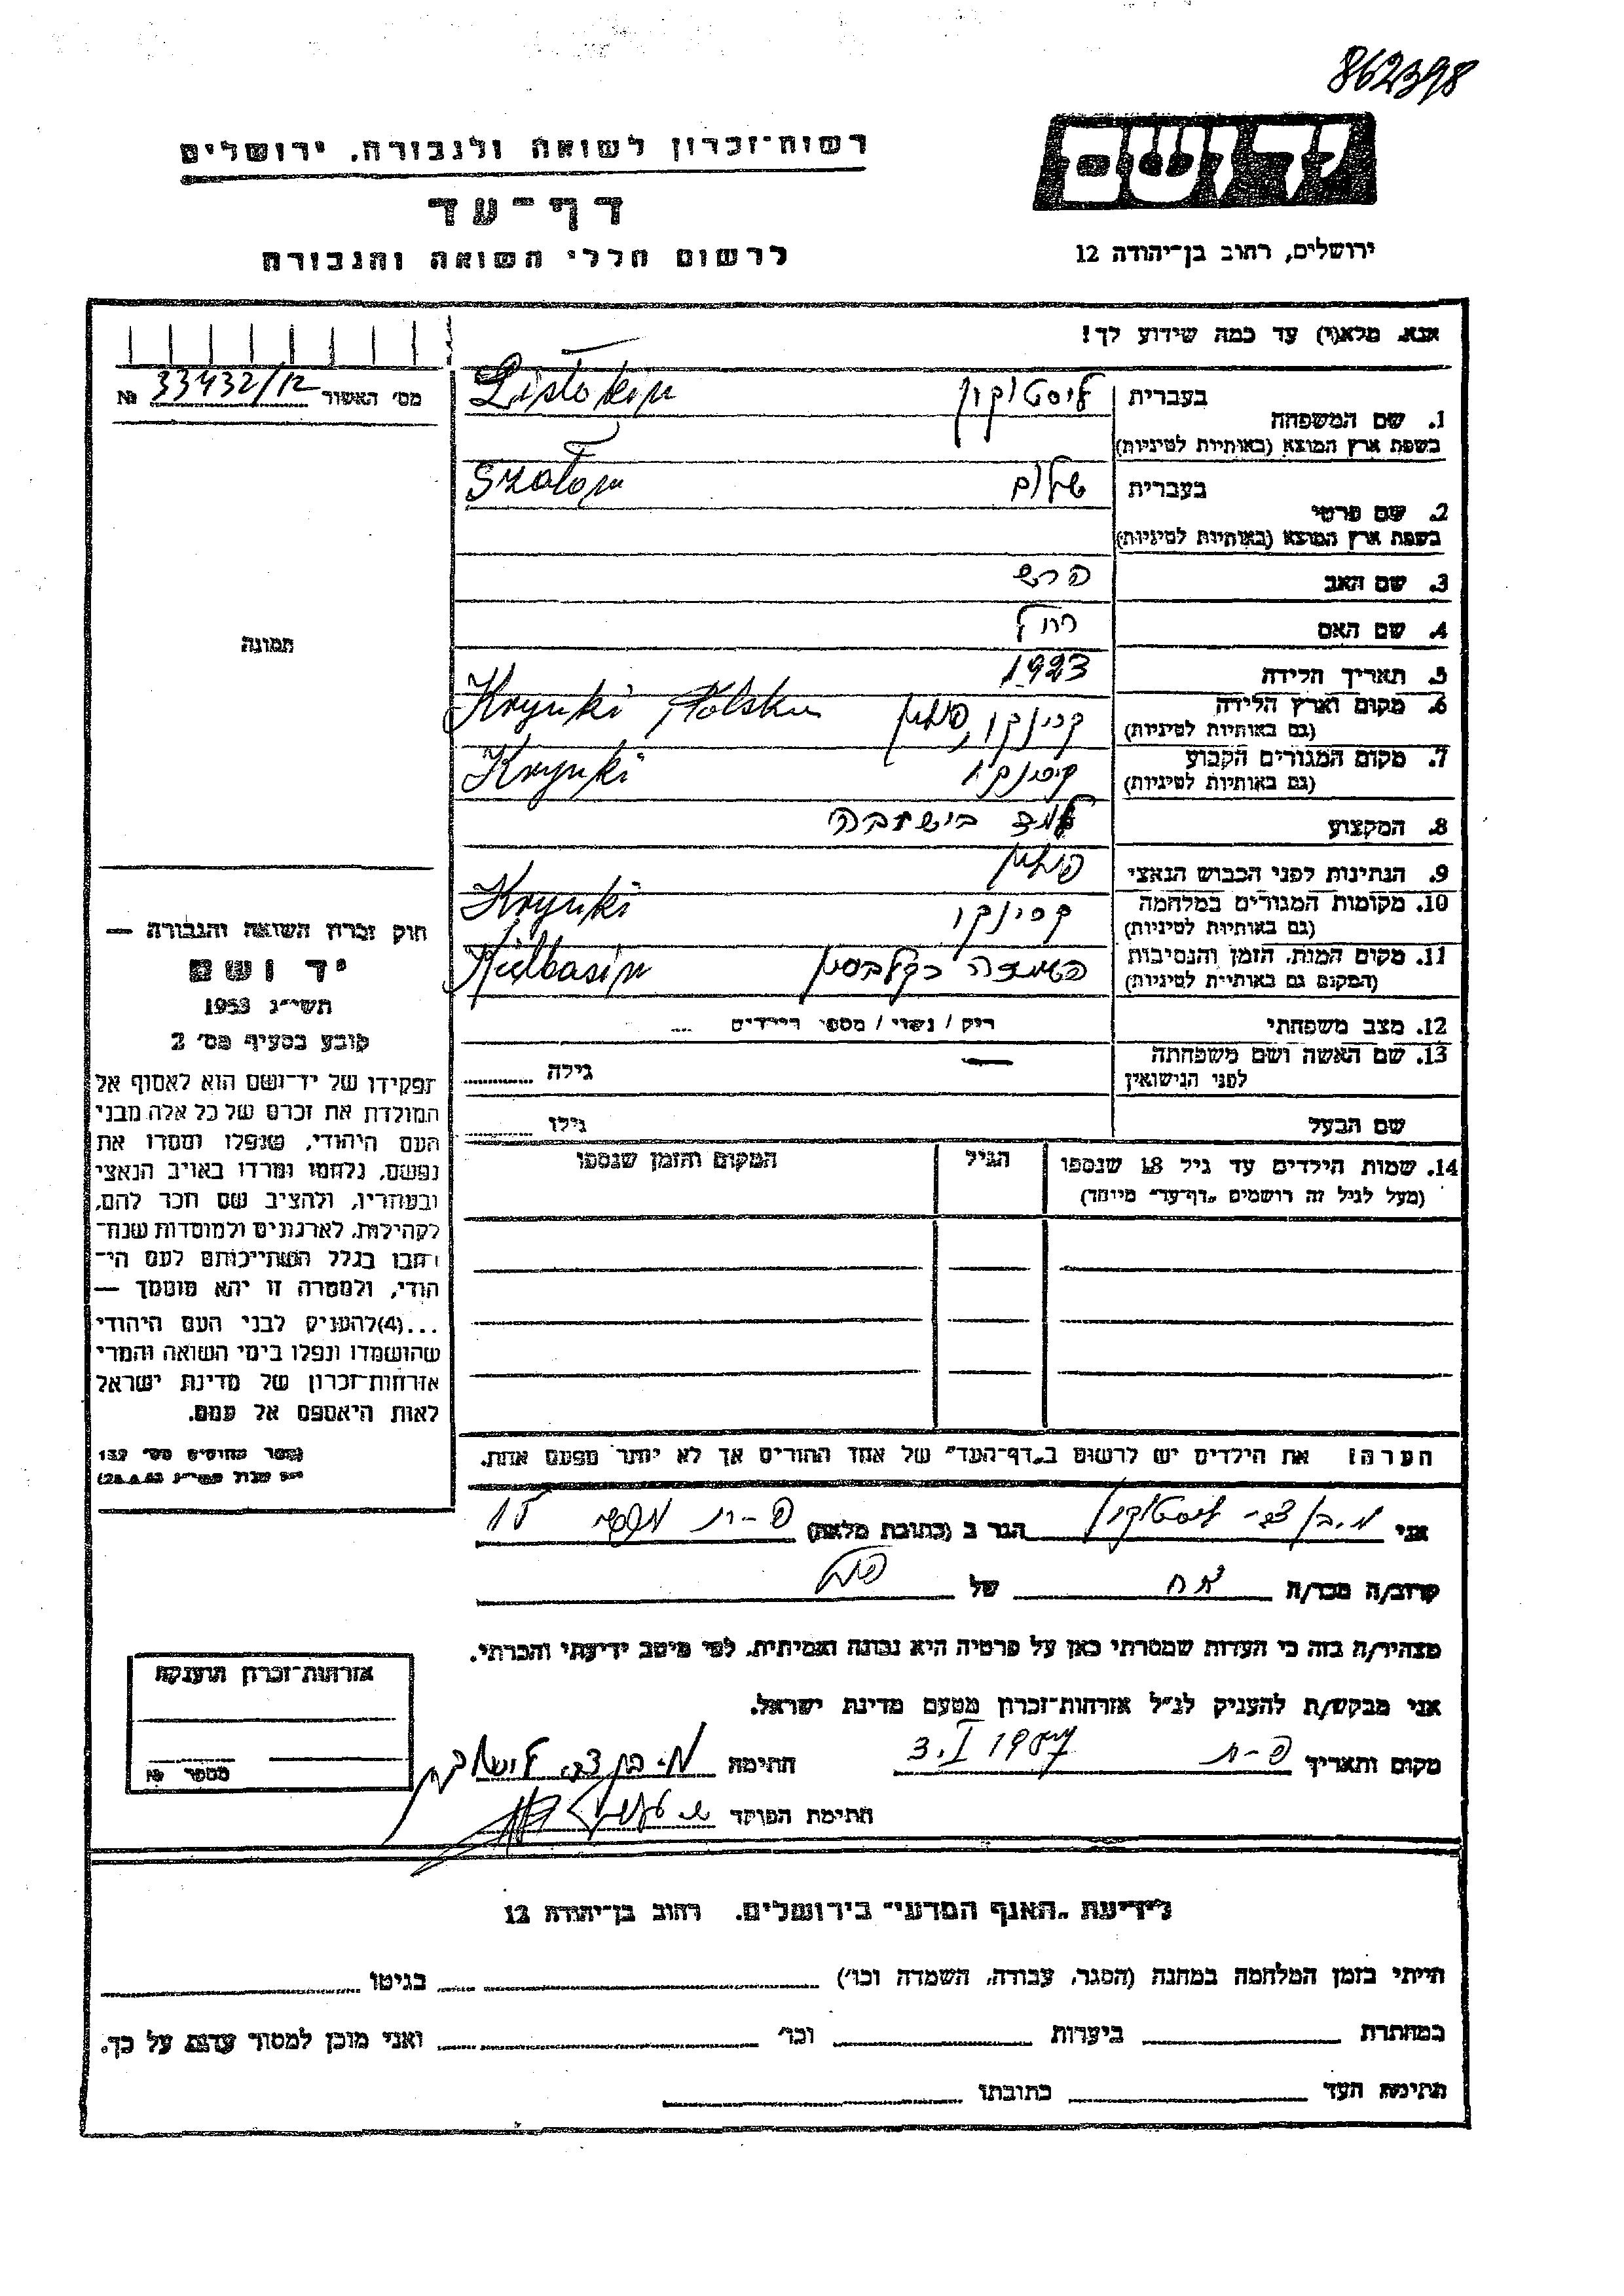 862398
יד ושם
רשות־זכרון לשואה ולגבורה, ירושלים
דף־עד
לרשום חללי השואה והגבורה
ירושלים, רחוב בן־יהודה 12
אנא, מלא(י) עד כמה שידוע לך!
מס׳ האשור 33432/12 №
1. שם המשפחה בעברית ליסטוקין Listokin
בשפת ארץ המוצא (באותיות לטיניות)
2. שם פרטי בעברית שלום Szalom
בשפת ארץ המוצא (באותיות לטיניות)
3. שם האב הרש
4. שם האם רחל
5. תאריך הלידה 1923
6. מקום וארץ הלידה קרינקי, פולין Krynki Polska
(גם באותיות לטיניות)
7. מקום המגורים הקבוע קרינקי Krynki
(גם באותיות לטיניות)
8. המקצוע למד בישיבה
9. הנתינות לפני הכבוש הנאצי פולין
10. מקומות המגורים במלחמה קרינקי Krynki
(גם באותיות לטיניות)
11. מקום המות, הזמן והנסיבות השמדה בקלבסין Kielbasin
(המקום גם באותיות לטיניות)
12. מצב משפחתי רווק / נשוי / מספר הילדים ...
13. שם האשה ושם משפחתה — גילה
לפני הנישואין
שם הבעל גילו
14. שמות הילדים עד גיל 18 שנספו הגיל המקום והזמן שנספו
(מעל לגיל זה רושמים „דף־עד״ מיוחד)
הערה: את הילדים יש לרשום ב„דף־העד״ של אחד ההורים אך לא יותר מפעם אחת.
תמונה
חוק זכרון השואה והגבורה —
יד ושם
תשי״ג 1953
קובע בסעיף מס׳ 2
תפקידו של יד־ושם הוא לאסוף אל
המולדת את זכרם של כל אלה מבני
העם היהודי, שנפלו ומסרו את
נפשם, נלחמו ומרדו באויב הנאצי
ובעוזריו, ולהציב שם וזכר להם,
לקהילות, לארגונים ולמוסדות שנח־
רבו בגלל השתייכותם לעם הי־
הודי, ולמטרה זו יהא מוסמך —
...(4)להעניק לבני העם היהודי
שהושמדו ונפלו בימי השואה והמרי
אזרחות־זכרון של מדינת ישראל
לאות היאספם אל עמם.
(ספר החוקים מס׳ 132
אני בן צבי ליסטוקין הגר ב (כתובת מלאה) פ-ת 15
קרוב/ה מכר/ה אח של
מצהיר/ה בזה כי העדות שמסרתי כאן על פרטיה היא נכונה ואמיתית, לפי מיטב ידיעתי והכרתי.
אני מבקש/ת להעניק לנ״ל אזרחות־זכרון מטעם מדינת ישראל.
מקום ותאריך פ-ת 3.I 1957 חתימה
חתימת הפוקד
אזרחות־זכרון הוענקה
מספר №
לידיעת „האגף המדעי״ בירושלים, רחוב בן־יהודה 12
הייתי בזמן המלחמה במחנה (הסגר, עבודה, השמדה וכו׳) בגיטו
במחתרת ביערות וכו׳ ואני מוכן למסור עדות על כך.
חתימת העד כתובתו